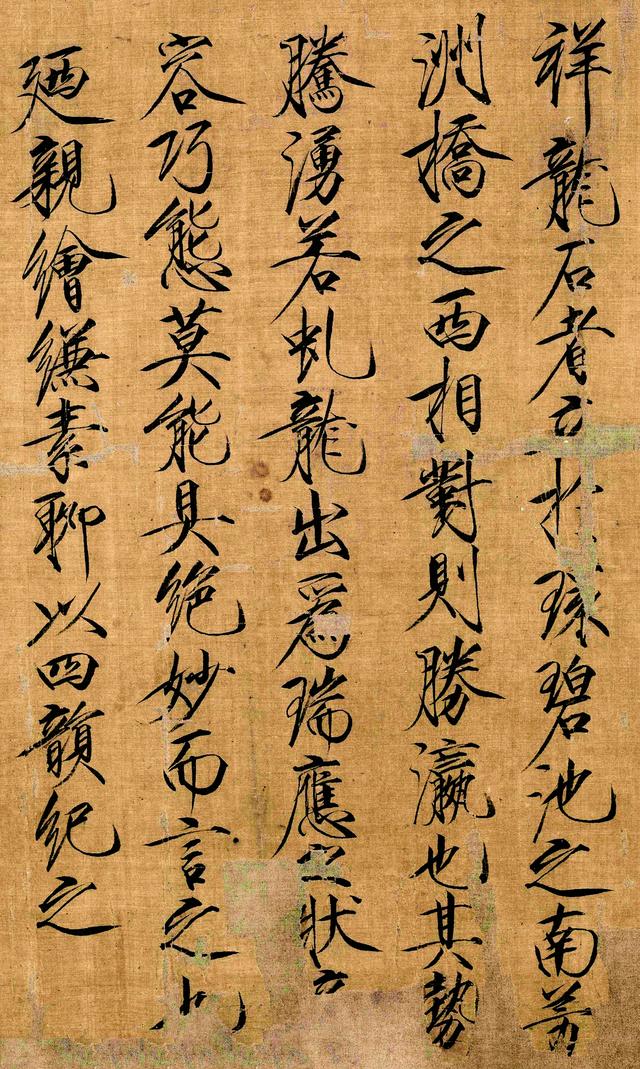 祥龍石者立於環碧池之南芳
洲橋之西相對則勝瀛也其勢
騰湧若虬龍出爲瑞應之狀
容巧態莫能具絶妙而言之也
廼親繪縑素聊以四韻紀之